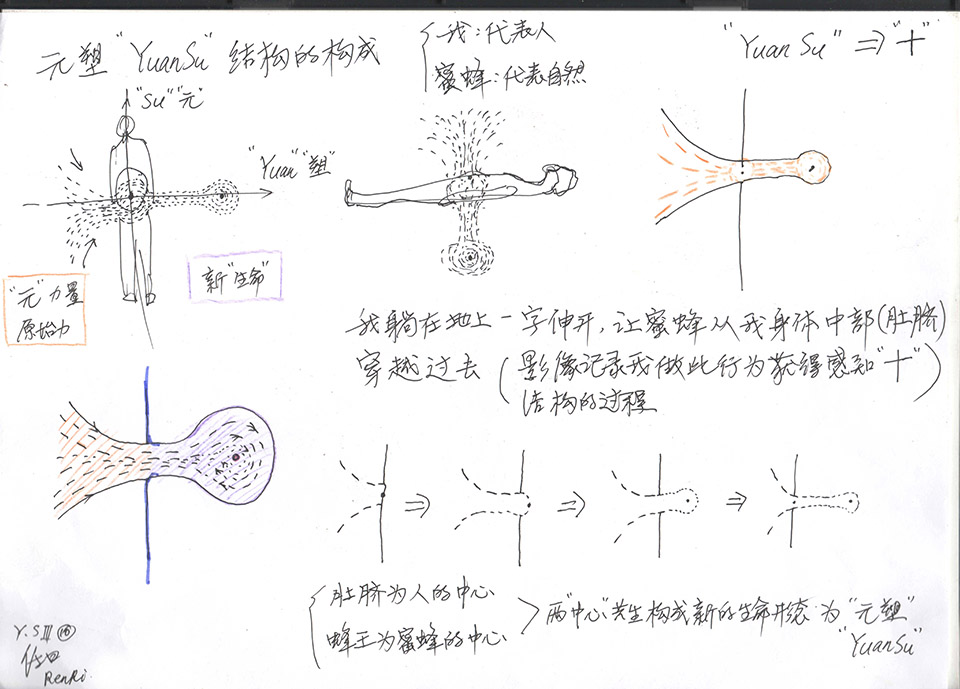 元塑"YuanSu"结构的构成
我:代表人
蜜蜂:代表自然
"YuanSu"⇒"十"
"Su""元"
"Yuan""塑"
"元"力量
原始力
新"生命"
我躺在地上一字伸开,让蜜蜂从我身体中部(肚脐)
穿越过去(影像记录我做此行为获得感知"十"
结构的过程)
肚脐为人的中心
蜂王为蜜蜂的中心
两"中心"共生构成新的生命形态为"元塑"
"YuanSu"
Y.SⅢ⑯
RenRi.